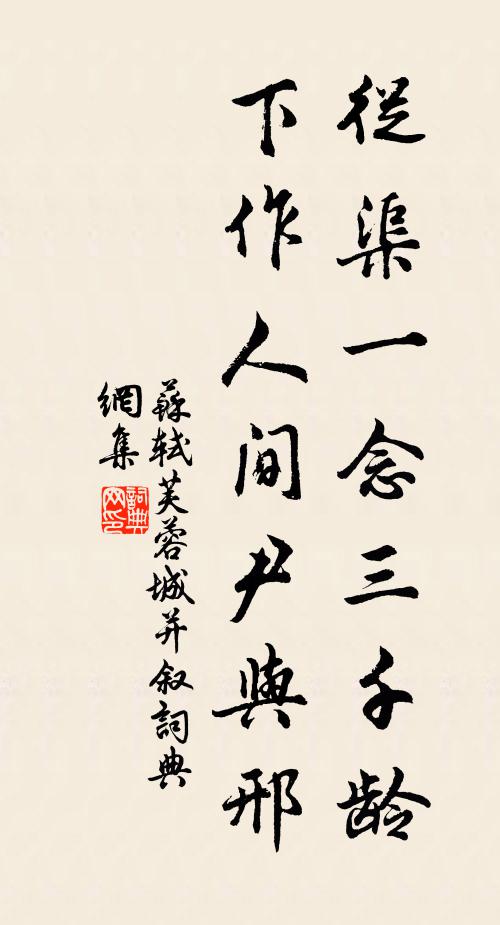 從渠一念三千齡
下作人間尹與邢
蘇軾芙蓉城并叙詞典
網集
詞典网印